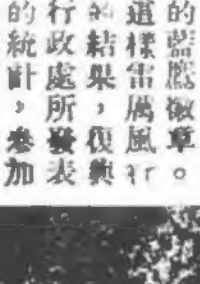 的藍鷹徽章。
這樣雷厲風行
的結果，復興
行政處所發表
的統計，參加